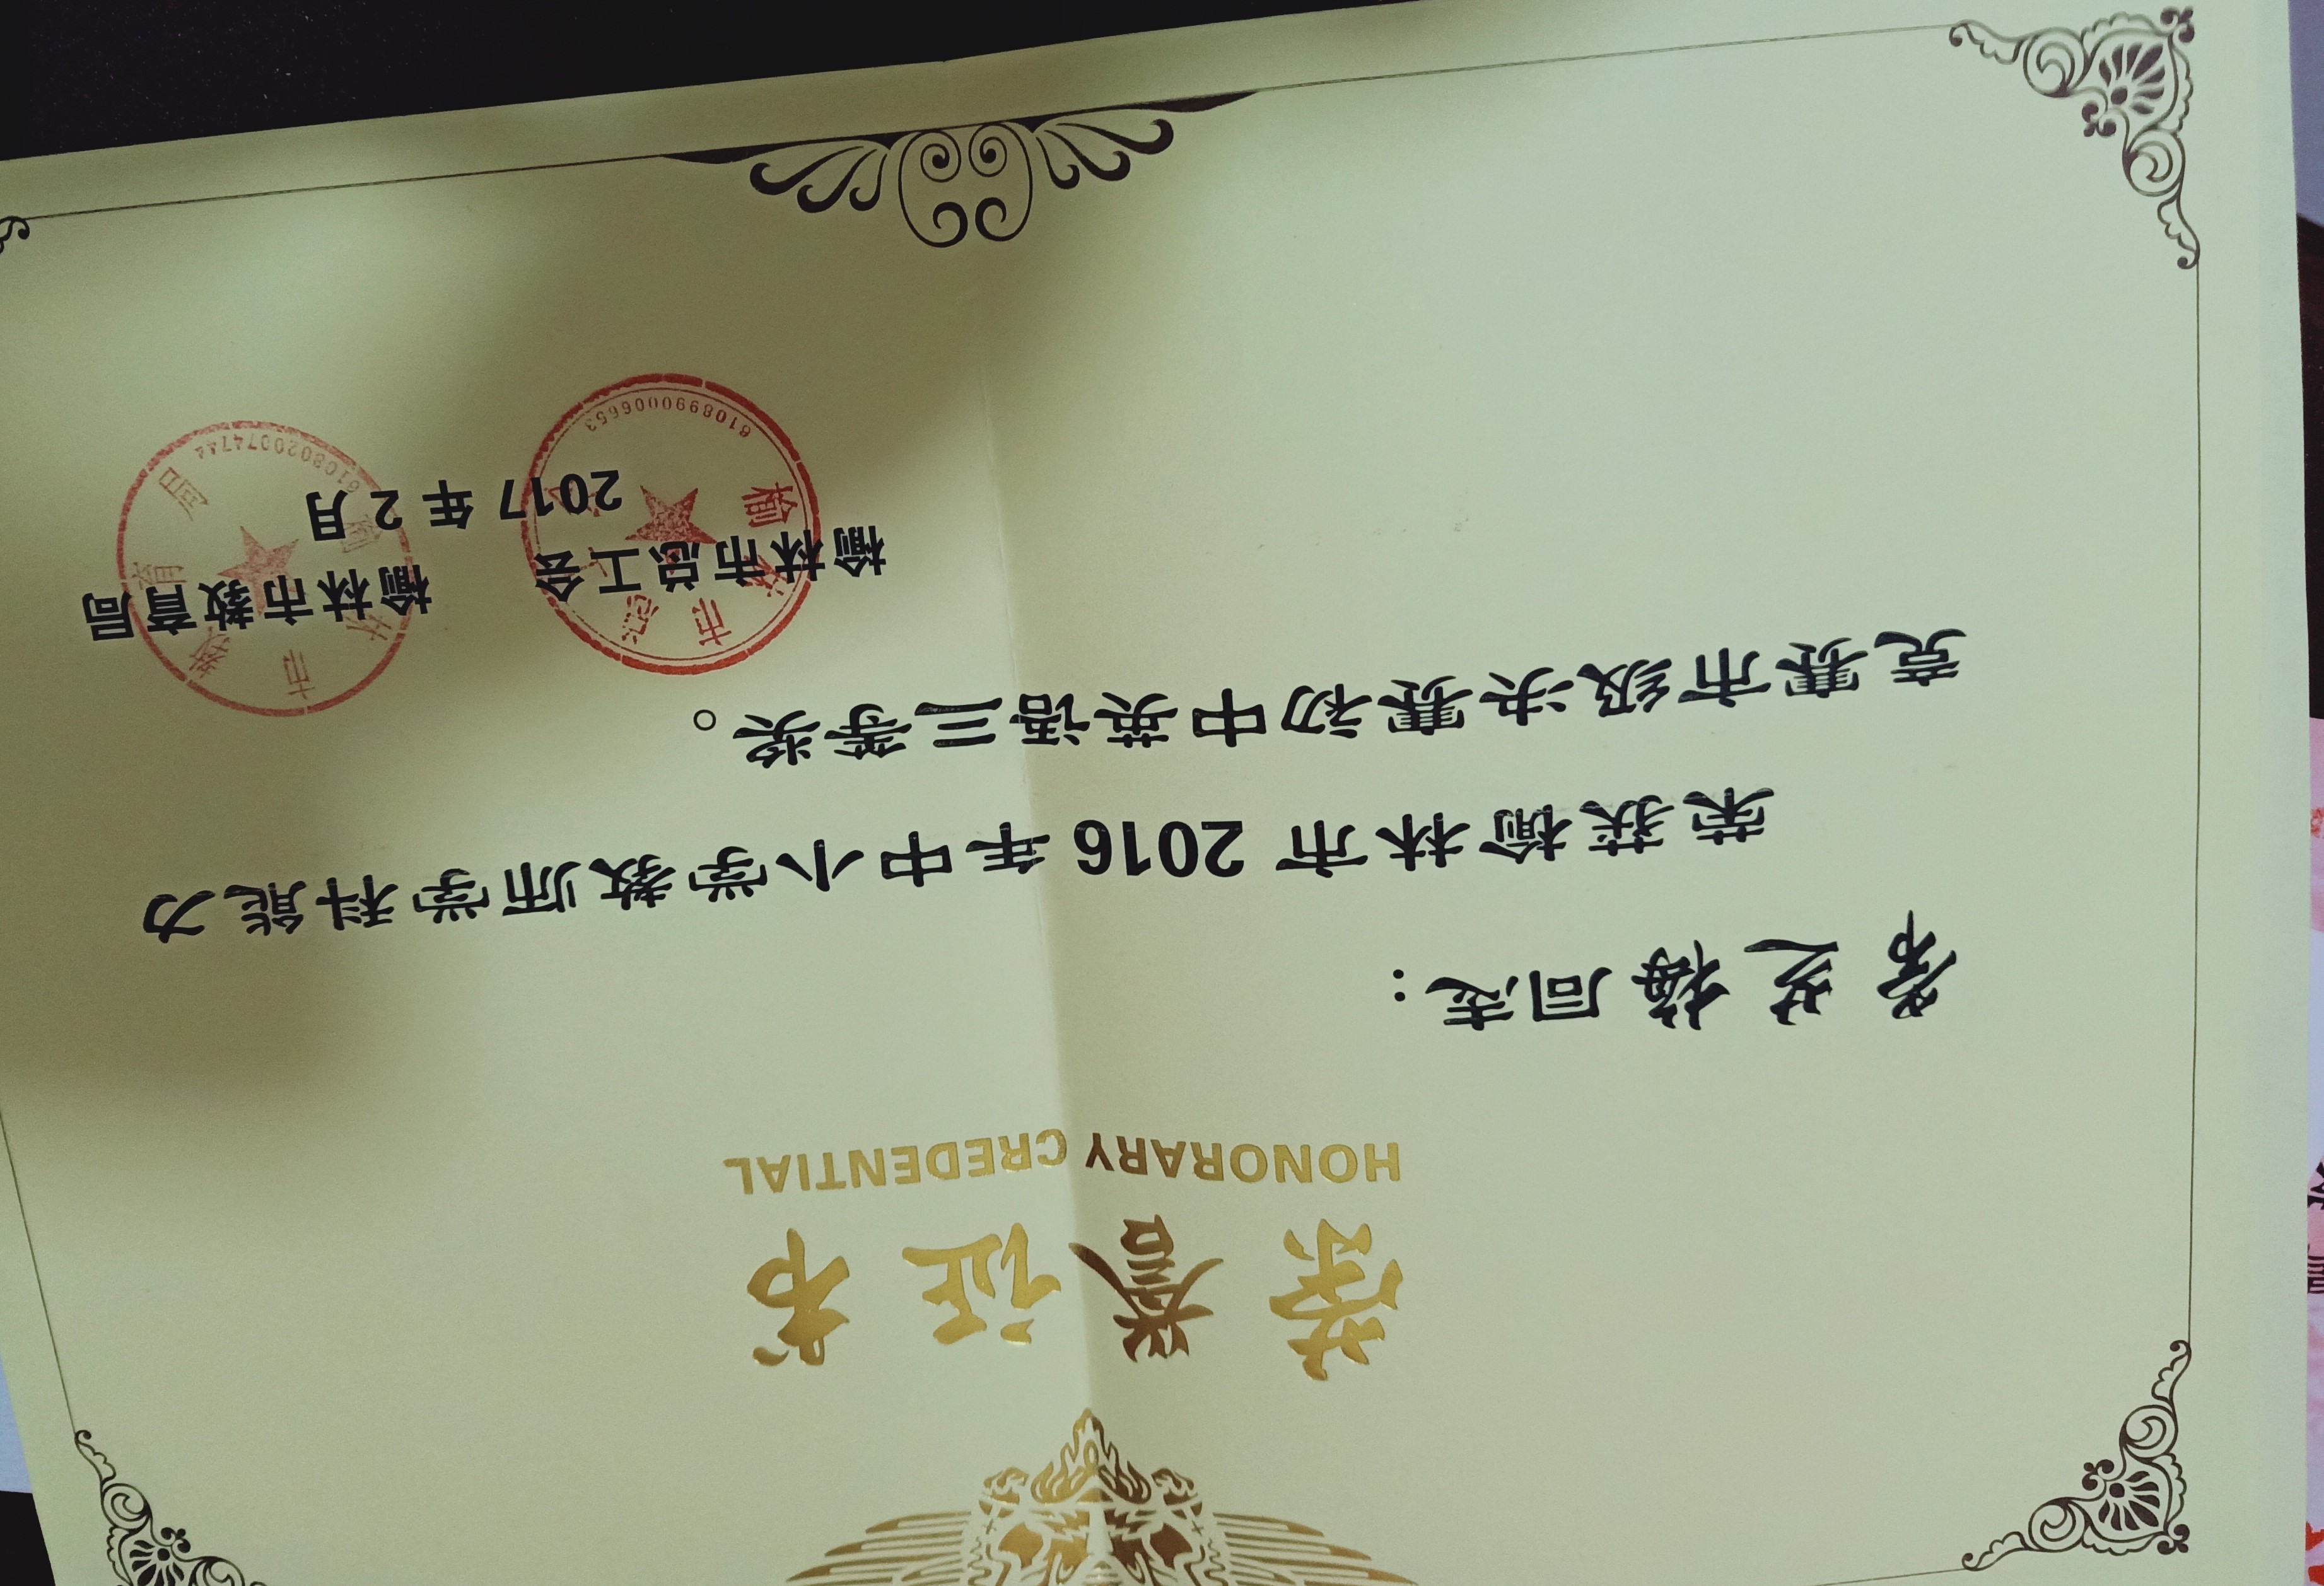 荣誉证书
HONORARY CREDENTIAL
席芝梅同志：
荣获榆林市 2016 年中小学教师学科能力
竞赛市级决赛初中英语三等奖。
榆林市总工会 榆林市教育局
2017 年 2 月
6108990006653
6108020074744